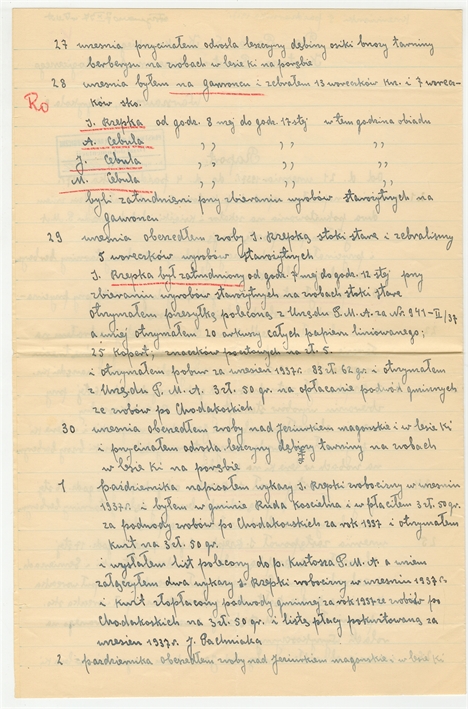 27 września przycinałem odrosla leszczyny dębiny osiki brzozy tarniny
berberysu na zrobach w lesie ki na porębie
28 września byłem na gawroncu i zebrałem 13 woreczków krz. i 7 worecz-
Ro
ków sko.
J. Rzepka od godz. 8 mej do godz. 17 stej w tem godzina obiadu
A. Cebula ,, ,, ,,
J. Cebula ,, ,, ,,
M. Cebula ,, ,, ,,
byli zatrudnieni przy zbieraniu wyrobów starożytnych na
gawroncu
29 września obszedłem zroby J. Rzepką stoki stare i zebraliśmy
5 woreczków wyrobów starożytnych
J. Rzepka był zatrudniony od godz. 7 mej do godz. 12 stej przy
zbieraniu wyrobów starożytnych na zrobach stoki stare
otrzymałem przesyłkę poleconą z Urzędu P. M. A. za Nr. 941-II/37
a w niej otrzymałem 20 arkuszy całych papieru liniowanego;
25 kopert; znaczków pocztowych na zł. 5.
i otrzymałem pobur za wresień 1937r. 83 zł. 62 gr. i otrzymałem
z Urzędu P. M. A. 3 zł. 50 gr. na opłacanie podwód gminnych
ze zrobów po Chodakoskich
30 września obszedłem zroby nad Jeriorkiem magonskie i w lesie ki
i przycinałem odrosla leszczyny dębiny tarniny na zrobach
w lesie ki na porębie
1 października napisałem wykazy J. Rzepki robocizny w wresniu
1937r. i byłem w gminie Ruda Kościelna i wpłaciłem 3 zł. 50 gr.
za podwody zrobów po Chodakowskich za rok 1937 i otrzymałem
kwit na 3 zł. 50 gr.
i wysłałem list polecony do p. Kustosza P. M. A. a wniem
załączyłem dwa wykazy J. Rzepki robocizny w wresniu 1937r.
i kwit podwody gminnej za rok 1937 ze zrobów po
Chodakoskich na 3 zł. 50 gr. i listę płacy pokwitowaną za
wresien 1937r. J. Pachniaka
2 października obszedłem zroby nad Jeriorkiem magonskie i w lesie ki